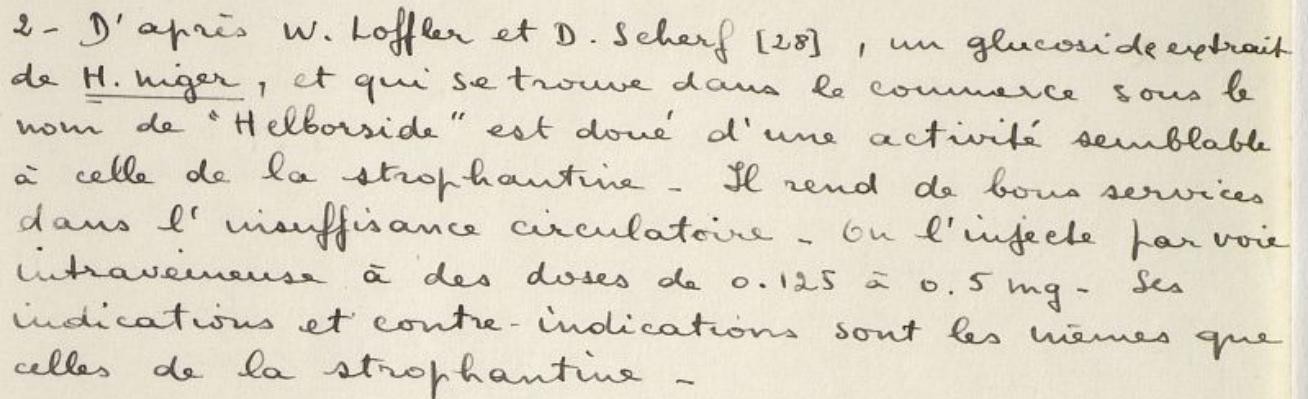 2 - D'après W. Loffler et D. Scherf [28], un glucoside extrait
de H. niger, et qui se trouve dans le commerce sous le
nom de "Helborside" est doué d'une activité semblable
à celle de la strophantine - Il rend de bons services
dans l'insuffisance circulatoire - On l'injecte par voie
intraveineuse à des doses de 0.125 à 0.5 mg - Ses
indications et contre-indications sont les mêmes que
celles de la strophantine -